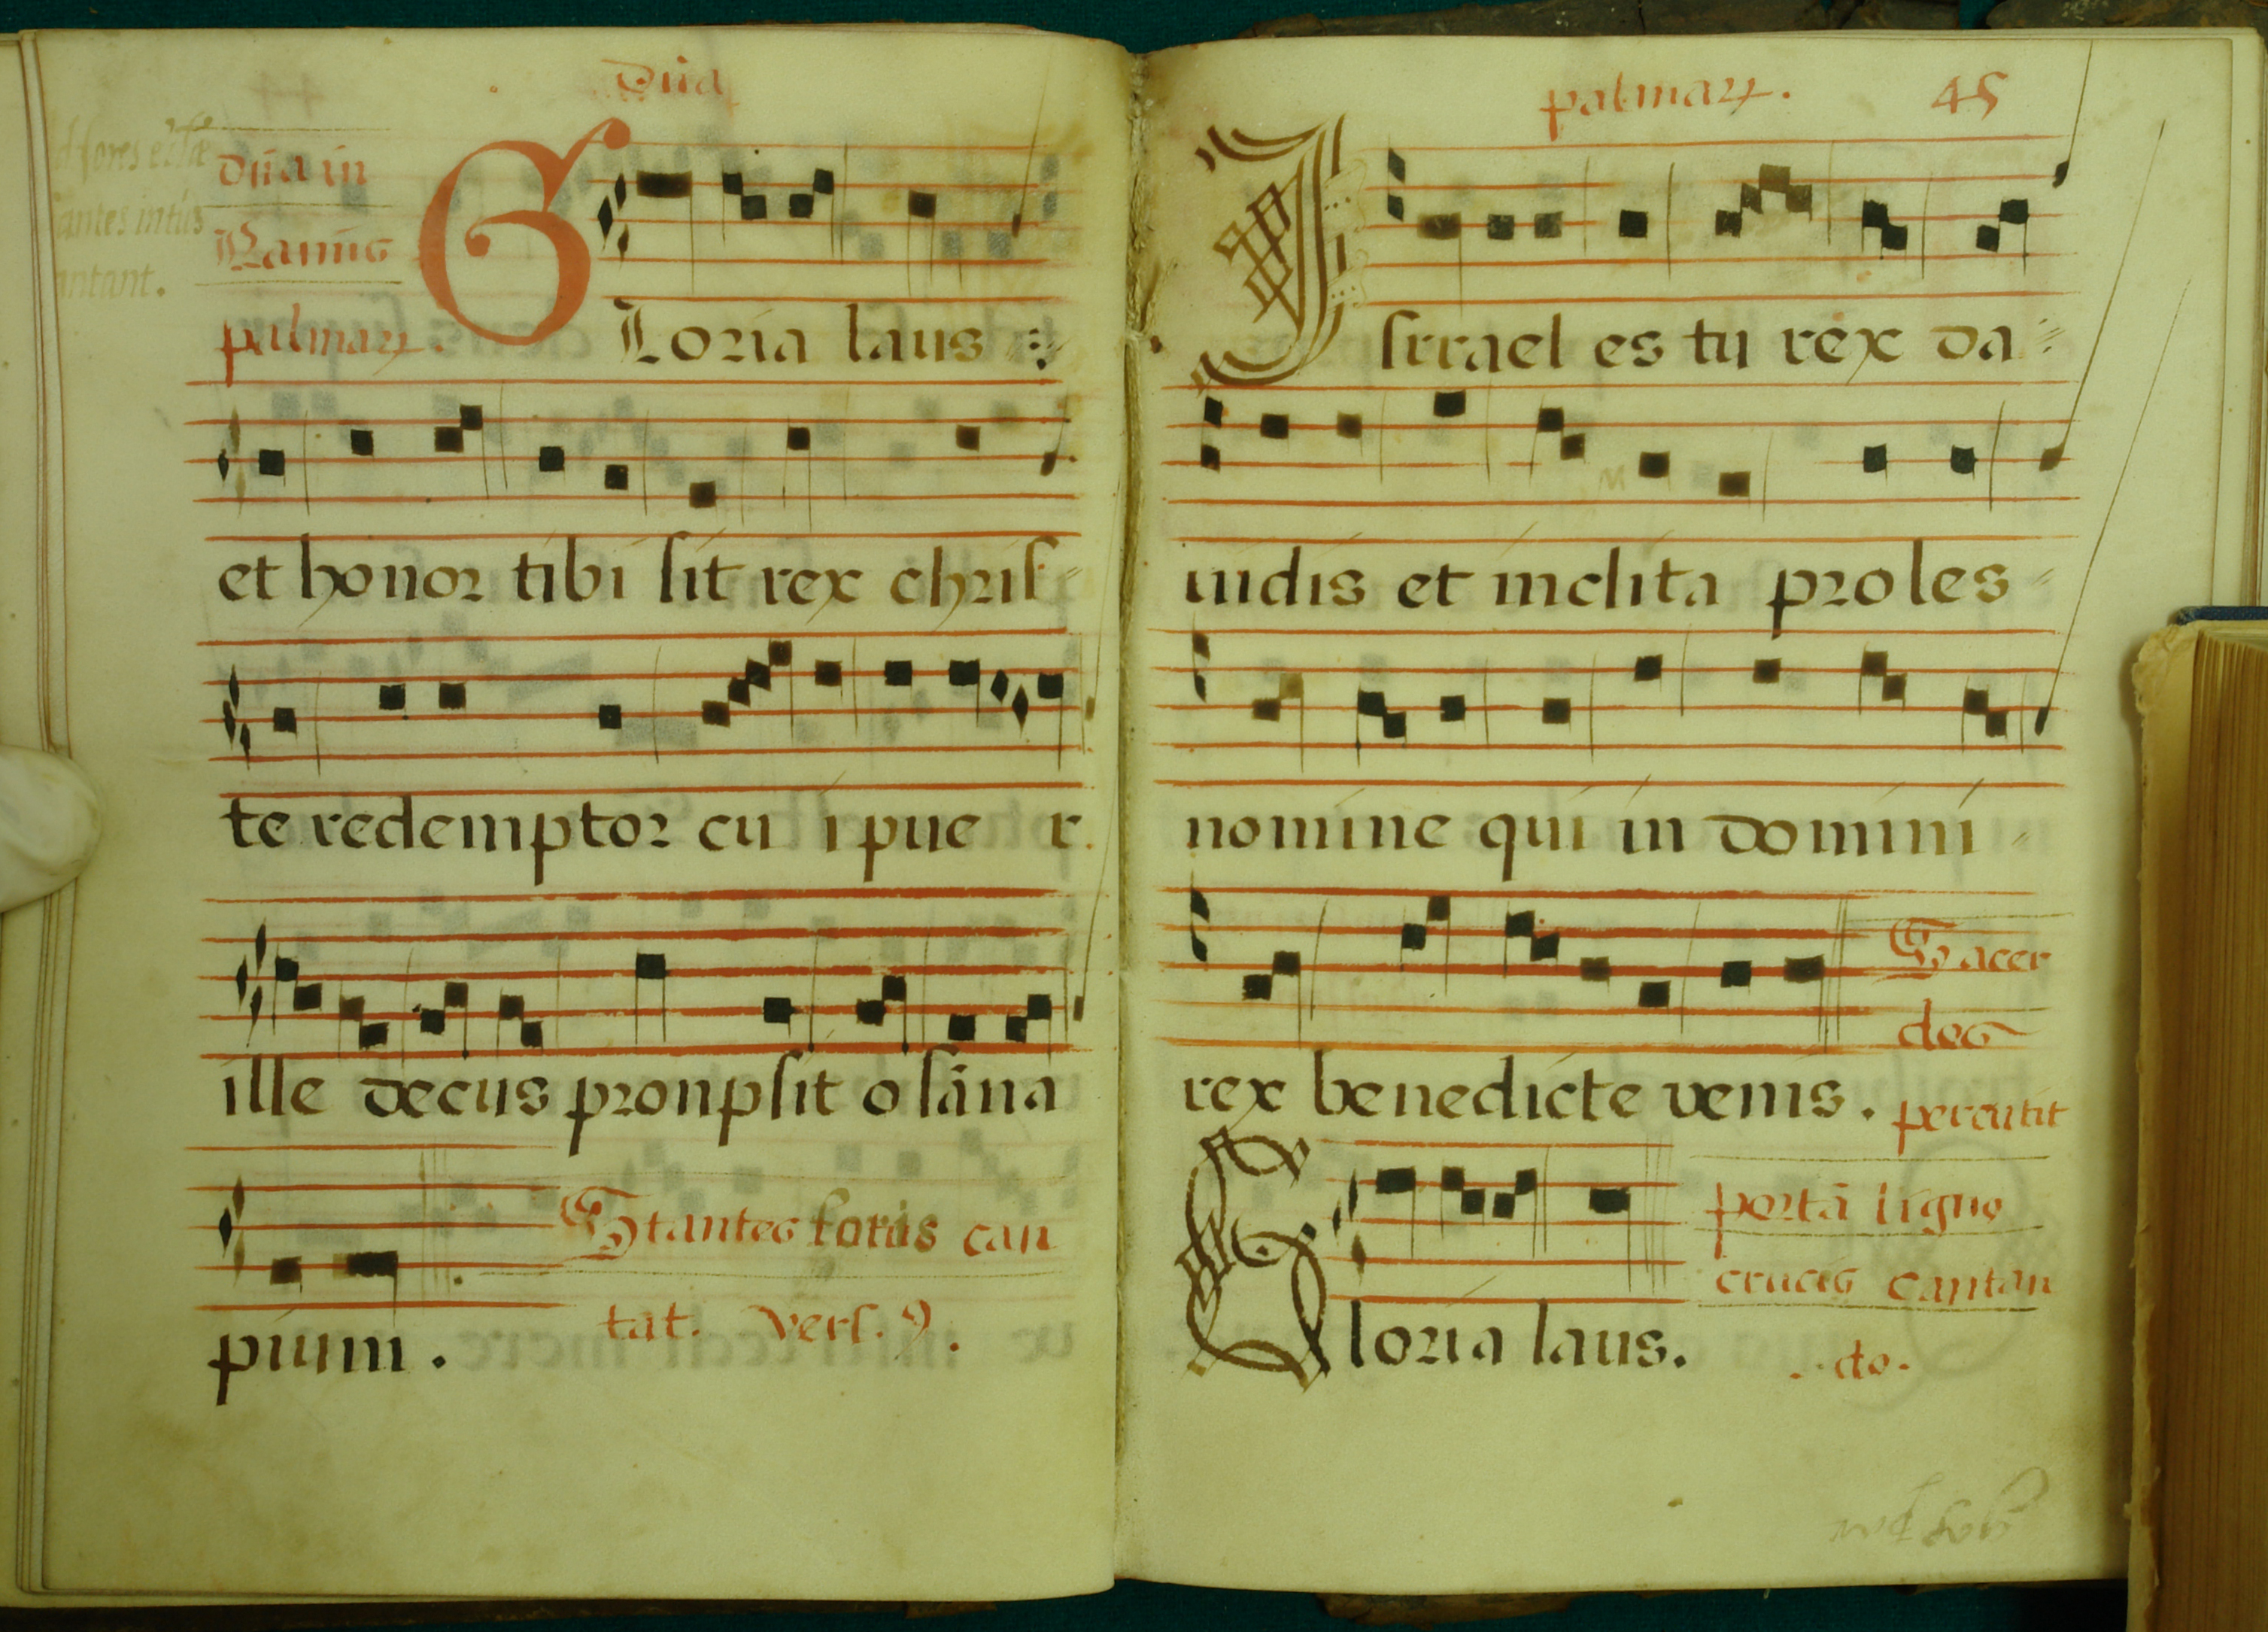 dña
d fores eclæ
antes intus
antant.
dñia in
Ramis
palmaꝝ.
GLoria laus
et honor tibi sit rex chris
te redemptor cu i pue r
ille decus pronpsit o sāna
pium.
Stantes foris can
tat. vers. ꝯ.
palmaꝝ. 45
Israel es tu rex da
uidis et inclita proles
nomine qui in domini
rex benedicte venis.
Sacer
dos
percutit
portā ligno
crucis cantan
do.
Gloria laus.